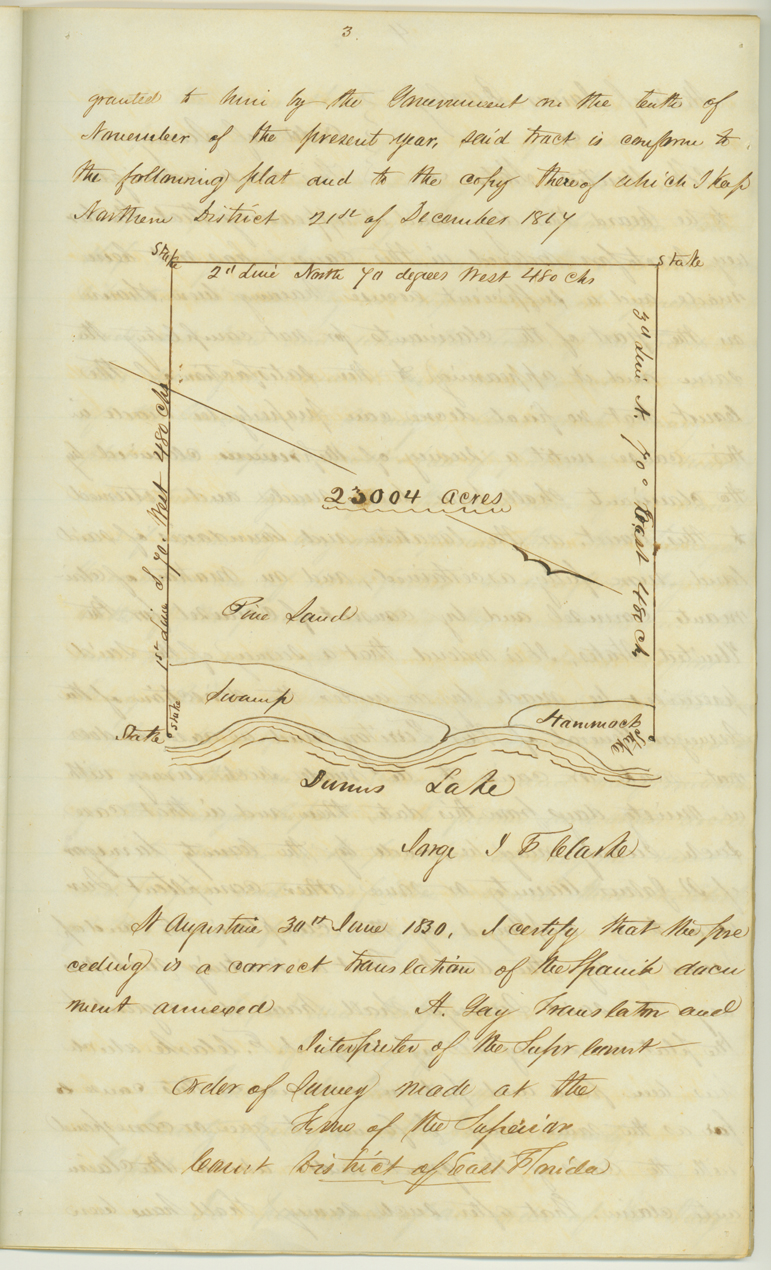 3.
granted to him by the Government on the tenth of
November of the present year, said tract is conform to
the following plat and to the copy thereof which I keep
Northern District 21st of December 1817
Stake
Stake
2d Line North 70 degrees West 480 Chs
3d Line N. 70° East 480 Ch
1st Line S. 70. West 480 Chs
23004 Acres
Pine Land
Swamp
Hammock
Stake
Stake
Stake
Dunns Lake
George I F Clarke
St Augustine 30th June 1830. I certify that the pre
ceeding is a correct translation of the Spanish docu
ment annexed A. Gay Translator and
Interpreter of the Supr Court
Order of Survey made at the
Term of the Superior
Court District of East Florida